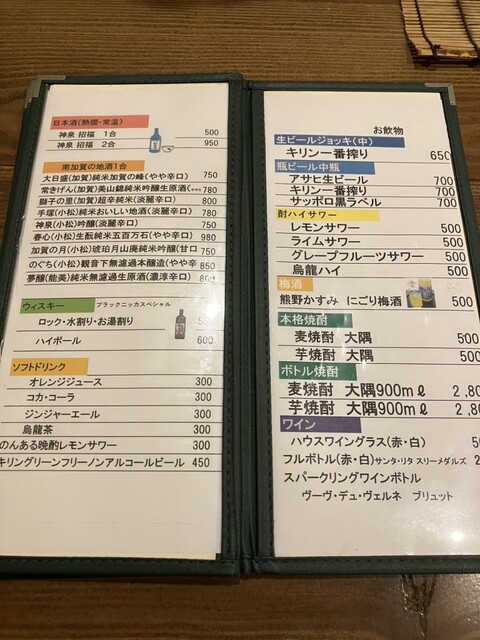 日本酒(熱燗・常温)
神泉 招福 1合 500
神泉 招福 2合 950
南加賀の地酒1合
大日盛(加賀)純米加賀の峰(やや辛口) 750
常きげん(加賀)美山錦純米吟醸生原酒 780
獅子の里(加賀)超辛純米(淡麗辛口) 800
手塚(小松)純米おいしい地酒(淡麗辛口) 780
神泉(小松)吟醸(淡麗辛口) 750
春心(小松)生酛純米五百万石(やや辛口) 980
加賀の月(小松)琥珀月山廃純米吟醸(甘口 750
のぐち(小松)観音下無濾過本醸造(やや辛 850
夢醸(能美)純米無濾過生原酒(濃淳辛口)
ウィスキー ブラックニッカスペシャル
ロック・水割り・お湯割り
ハイボール 600
ソフトドリンク
オレンジジュース 300
コカ・コーラ 300
ジンジャーエール 300
烏龍茶 300
のんある晩酌レモンサワー 300
キリングリーンフリーノンアルコールビール 450
お飲物
生ビールジョッキ(中)
キリン一番搾り 650
瓶ビール中瓶
アサヒ生ビール 700
キリン一番搾り 700
サッポロ黒ラベル 700
酎ハイサワー
レモンサワー 500
ライムサワー 500
グレープフルーツサワー 500
烏龍ハイ 500
梅酒
熊野かすみ にごり梅酒 500
本格焼酎
麦焼酎 大隅 500
芋焼酎 大隅 500
ボトル焼酎
麦焼酎 大隅900mℓ 2,80
芋焼酎 大隅900mℓ 2,80
ワイン
ハウスワイングラス(赤・白)
フルボトル(赤・白)サンタ・リタ スリーメダルズ
スパークリングワインボトル
ヴーヴ・デュ・ヴェルネ ブリュット